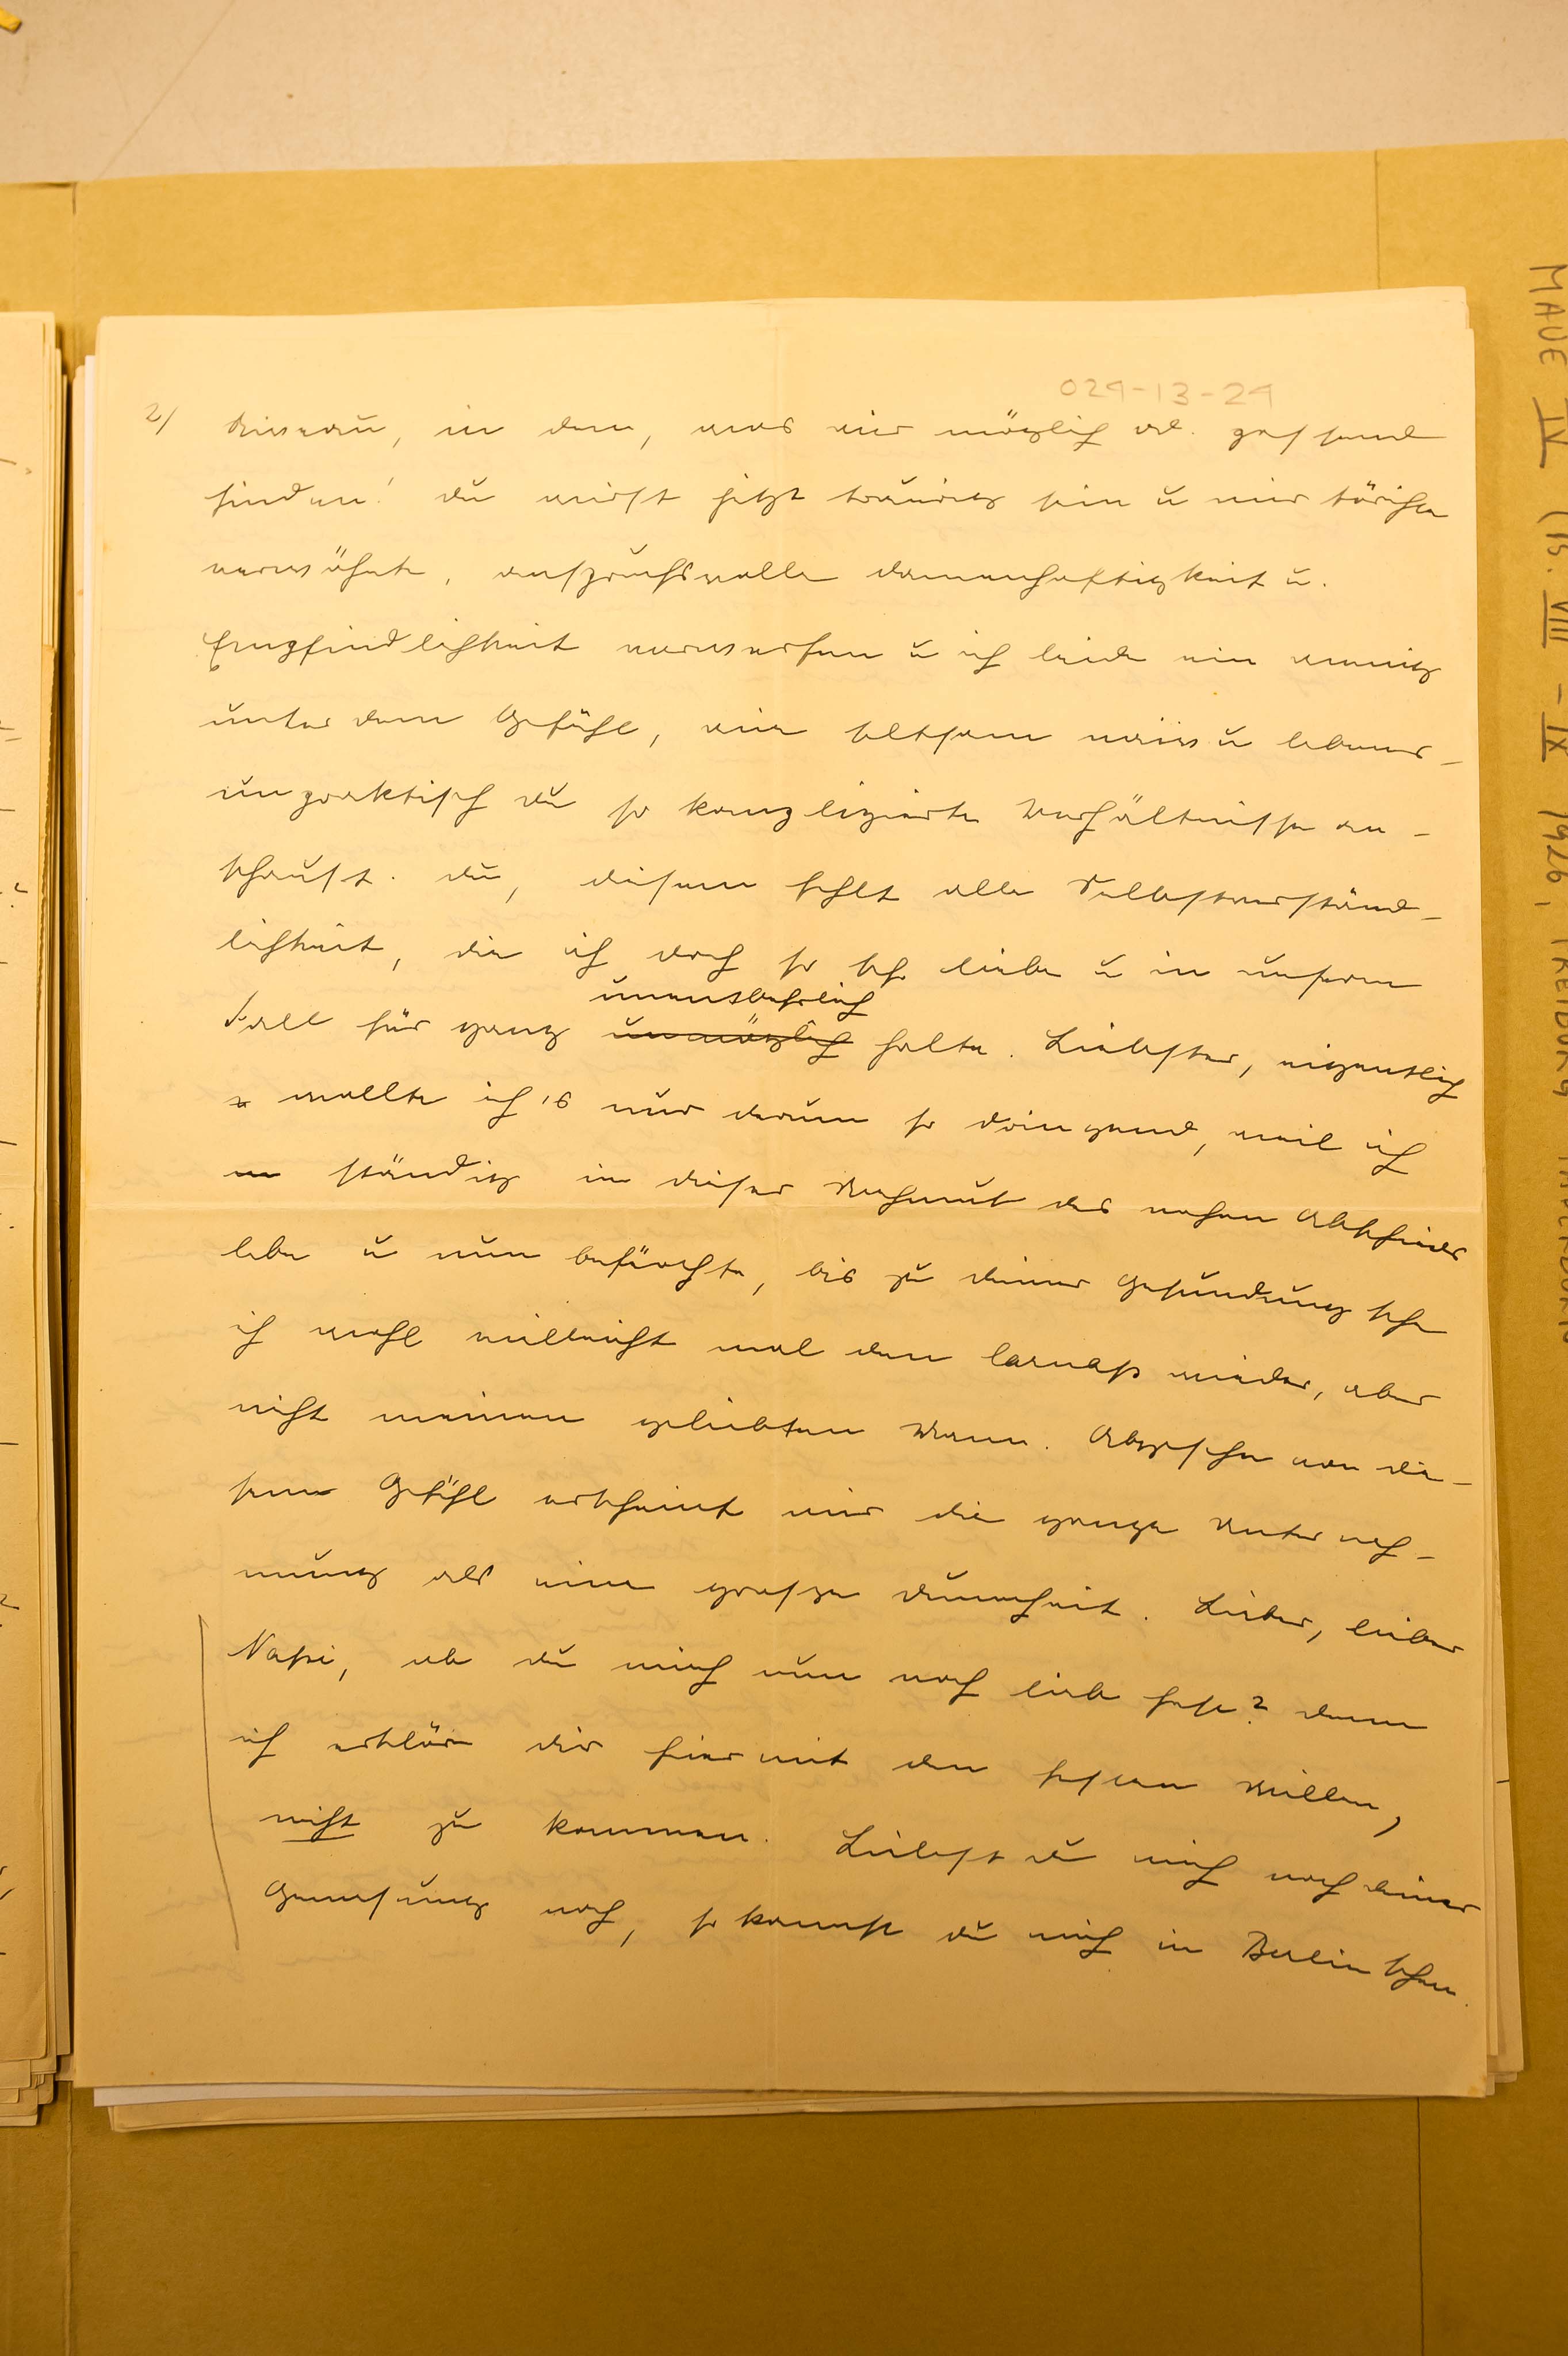 029-13-29
2/ Niveau, in dem, was wir möglich od. passend
finden! Du wirst jetzt traurig sein u mir törichte
verwöhnte, anspruchsvolle Damenhaftigkeit u.
Empfindlichkeit vorwerfen u ich leide ein wenig
unter dem Gefühl, wie seltsam naiv u lebens-
unpraktisch Du so komplizierte Verhältnisse an-
schaust. Du, diesem fehlt alle Selbstverständ-
lichkeit, die ich doch so sehr liebe u in unserm
unentbehrlich
Fall für ganz unmöglich halte. Liebster, eigentlich
wollte ich 's nur darum so dringend, weil ich
ständig in dieser Wehmut des nahen Abschieds
lebe u nun befürchte, bis zu deiner Gesundung sehe
ich wohl vielleicht mal den wieder, aber
nicht meinen geliebten Mann. Abgesehen von die-
sem Gefühl erscheint mir die ganze Unterneh-
mung als eine grosse Dummheit. Lieber, lieber
ob du mich nun noch lieb hast? Denn
ich erkläre dir hiermit den festen Willen,
nicht zu kommen. Liebst du mich nach deiner
Genesung noch, so kommst du mich in Berlin sehen.
MAUE IV (15. VIII - IX 1926,